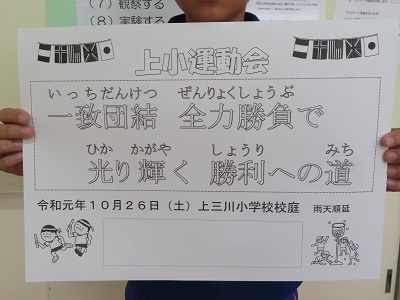 (7)観察する
(8)実験する
上小運動会
いっちだんけつ ぜんりょくしょうぶ
一致団結 全力勝負で
ひか かがや しょうり みち
光り輝く 勝利への道
令和元年10月26日(土)上三川小学校校庭 雨天順延